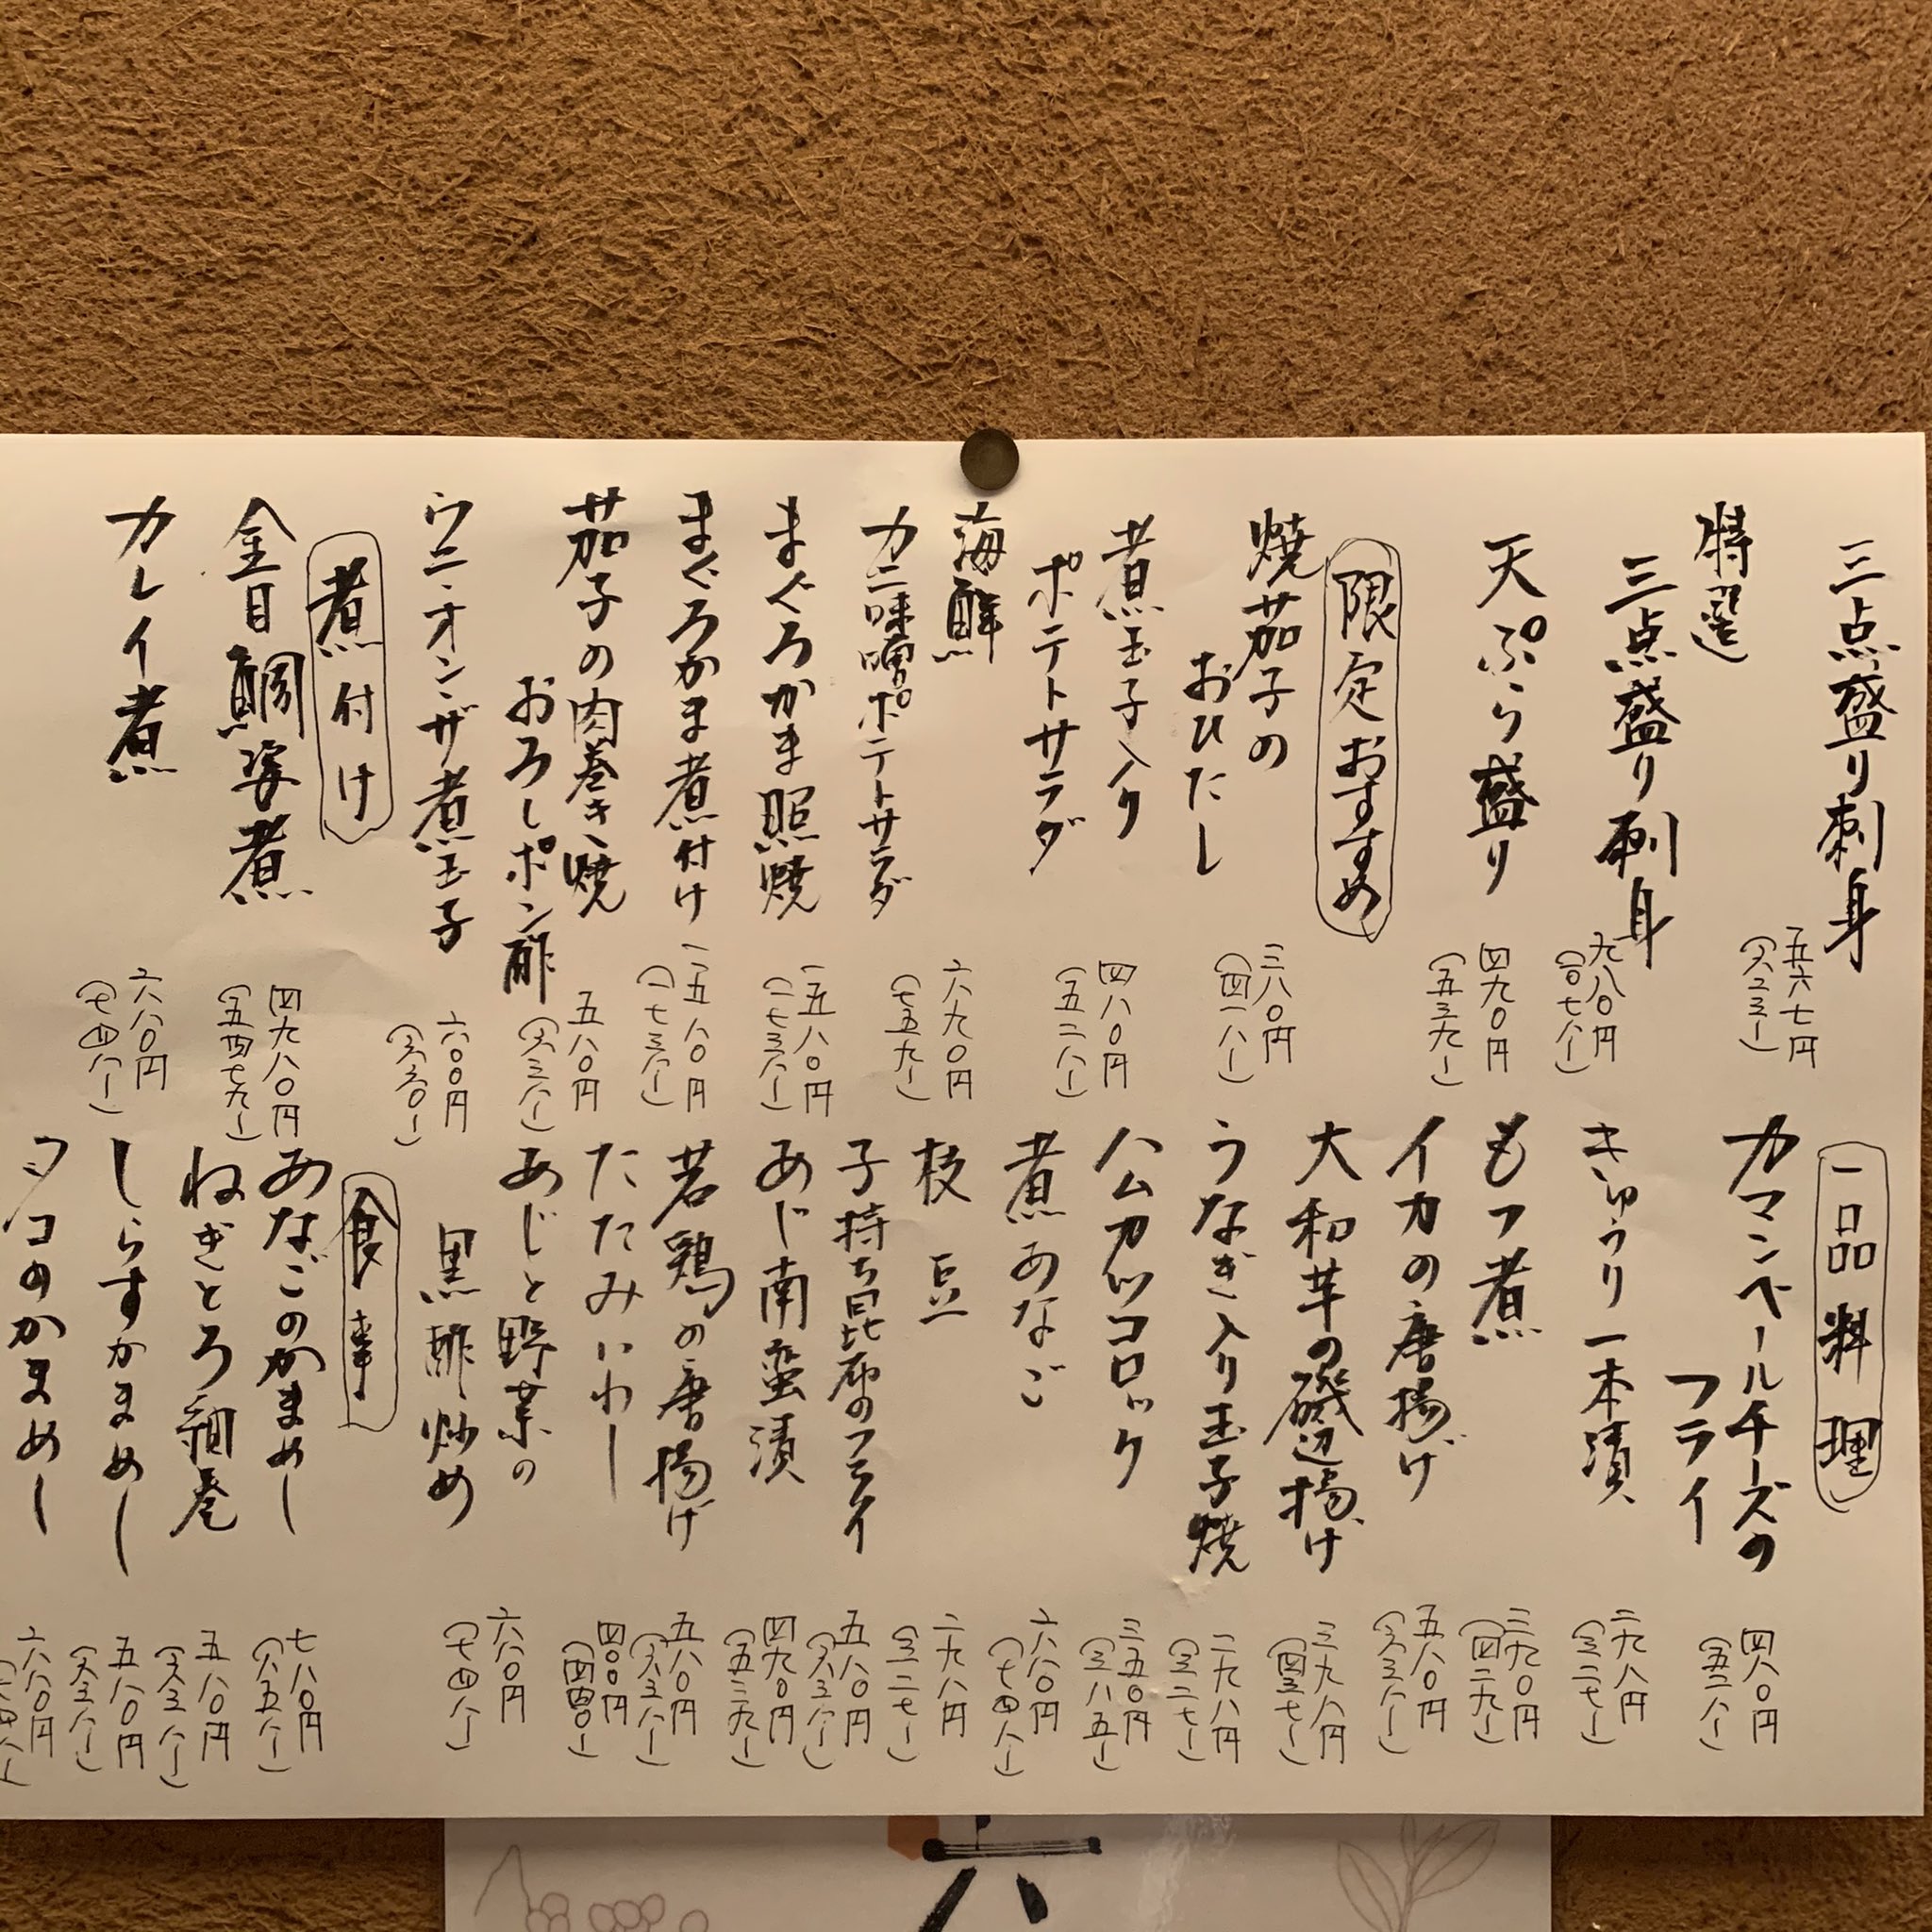 三点盛り刺身
五六七円
(六二三-)
特選
三点盛り刺身
九八〇円
(一〇七八-)
天ぷら盛り
四九〇円
(五三九-)
限定おすすめ
焼茄子の
おひたし
三八〇円
(四一八-)
煮玉子入り
ポテトサラダ
四八〇円
(五二八-)
海鮮
カニ味噌ポテトサラダ
六九〇円
(七五九-)
まぐろかま照焼
一五八〇円
(一七三八-)
まぐろかま煮付け
一五八〇円
(一七三八-)
茄子の肉巻き焼
おろしポン酢
五八〇円
(六三八-)
ウニ・オン・ザ煮玉子
六〇〇円
(六六〇-)
煮付け
金目鯛姿煮
四九八〇円
(五四七九-)
カレイ煮
六八〇円
(七四八-)
一品料理
カマンベールチーズの
フライ
四八〇円
(五二八-)
きゅうり一本漬
二九八円
(三二七-)
もつ煮
三九〇円
(四二九-)
イカの唐揚げ
五八〇円
(六三八-)
大和芋の磯辺揚げ
三九八円
(四三七-)
うなぎ入り玉子焼
二九八円
(三二七-)
ハムカツコロッケ
三五〇円
(三八五-)
煮あなご
六八〇円
(七四八-)
枝豆
二九八円
(三二七-)
子持ち昆布のフライ
五八〇円
(六三八-)
あじ南蛮漬
四九〇円
(五三九-)
若鶏の唐揚げ
五八〇円
(六三八-)
たたみいわし
四〇〇円
(四四〇-)
あじと野菜の
黒酢炒め
六八〇円
(七四八-)
食事
あなごのかまめし
七八〇円
(八五八-)
ねぎとろ細巻
五八〇円
(六三八-)
しらすかまめし
五八〇円
(六三八-)
タコのかまめし
六八〇円
六